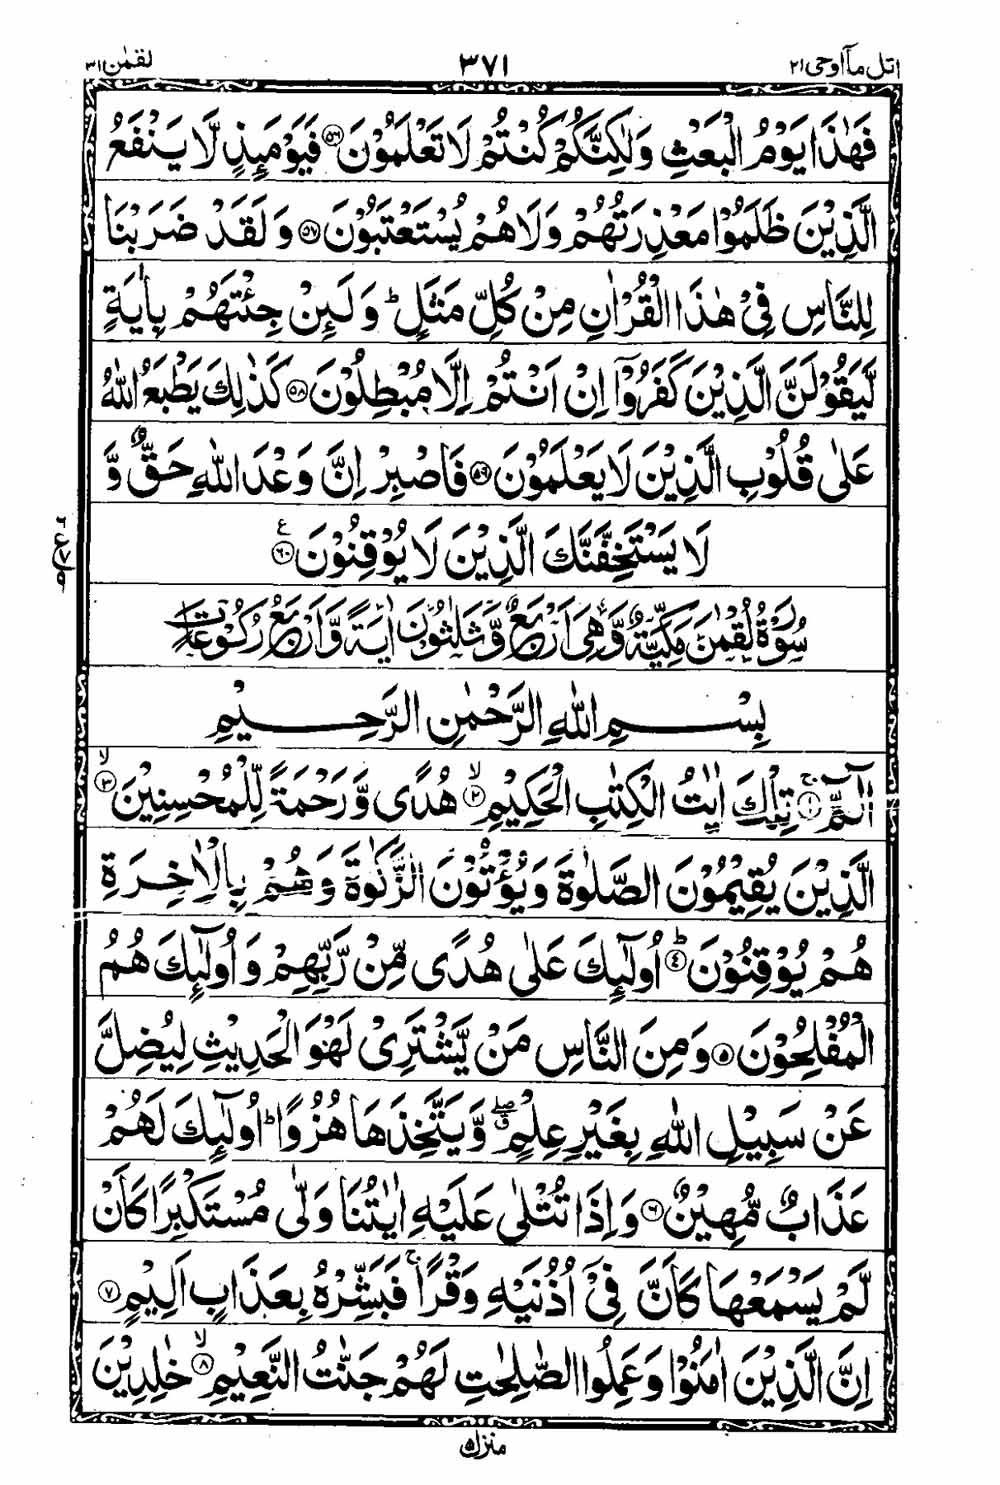 اتل مآ اوحی ۲۱ ۳۷۱ لقمٰن ۳۱
فَهٰذَا يَوْمُ الْبَعْثِ وَلٰكِنَّكُمْ كُنْتُمْ لَا تَعْلَمُوْنَ ﴿۵۶﴾ فَيَوْمَئِذٍ لَّا يَنْفَعُ
الَّذِيْنَ ظَلَمُوْا مَعْذِرَتُهُمْ وَلَا هُمْ يُسْتَعْتَبُوْنَ ﴿۵۷﴾ وَلَقَدْ ضَرَبْنَا
لِلنَّاسِ فِىْ هٰذَا الْقُرْاٰنِ مِنْ كُلِّ مَثَلٍ ؕ وَلَئِنْ جِئْتَهُمْ بِاٰيَةٍ
لَّيَقُوْلَنَّ الَّذِيْنَ كَفَرُوْٓا اِنْ اَنْتُمْ اِلَّا مُبْطِلُوْنَ ﴿۵۸﴾ كَذٰلِكَ يَطْبَعُ اللّٰهُ
عَلٰى قُلُوْبِ الَّذِيْنَ لَا يَعْلَمُوْنَ ﴿۵۹﴾ فَاصْبِرْ اِنَّ وَعْدَ اللّٰهِ حَقٌّ وَّ
لَا يَسْتَخِفَّنَّكَ الَّذِيْنَ لَا يُوْقِنُوْنَ ﴿۶۰﴾ ع
سُوْرَةُ لُقْمٰنَ مَكِّيَّةٌ وَّهِىَ اَرْبَعٌ وَّثَلٰثُوْنَ اٰيَةً وَّاَرْبَعُ رُكُوْعَاتٍ
بِسْمِ اللّٰهِ الرَّحْمٰنِ الرَّحِيْمِ
الٓمّٓ ﴿۱﴾ۚ تِلْكَ اٰيٰتُ الْكِتٰبِ الْحَكِيْمِ ﴿۲﴾ۙ هُدًى وَّرَحْمَةً لِّلْمُحْسِنِيْنَ ﴿۳﴾ۙ
الَّذِيْنَ يُقِيْمُوْنَ الصَّلٰوةَ وَيُؤْتُوْنَ الزَّكٰوةَ وَهُمْ بِالْاٰخِرَةِ
هُمْ يُوْقِنُوْنَ ﴿۴﴾ؕ اُولٰٓئِكَ عَلٰى هُدًى مِّنْ رَّبِّهِمْ وَاُولٰٓئِكَ هُمُ
الْمُفْلِحُوْنَ ﴿۵﴾ وَمِنَ النَّاسِ مَنْ يَّشْتَرِىْ لَهْوَ الْحَدِيْثِ لِيُضِلَّ
عَنْ سَبِيْلِ اللّٰهِ بِغَيْرِ عِلْمٍ ۖ وَّيَتَّخِذَهَا هُزُوًا ؕ اُولٰٓئِكَ لَهُمْ
عَذَابٌ مُّهِيْنٌ ﴿۶﴾ وَاِذَا تُتْلٰى عَلَيْهِ اٰيٰتُنَا وَلّٰى مُسْتَكْبِرًا كَاَنْ
لَّمْ يَسْمَعْهَا كَاَنَّ فِىْٓ اُذُنَيْهِ وَقْرًا ۚ فَبَشِّرْهُ بِعَذَابٍ اَلِيْمٍ ﴿۷﴾
اِنَّ الَّذِيْنَ اٰمَنُوْا وَعَمِلُوا الصّٰلِحٰتِ لَهُمْ جَنّٰتُ النَّعِيْمِ ﴿۸﴾ۙ خٰلِدِيْنَ
منزل ۵